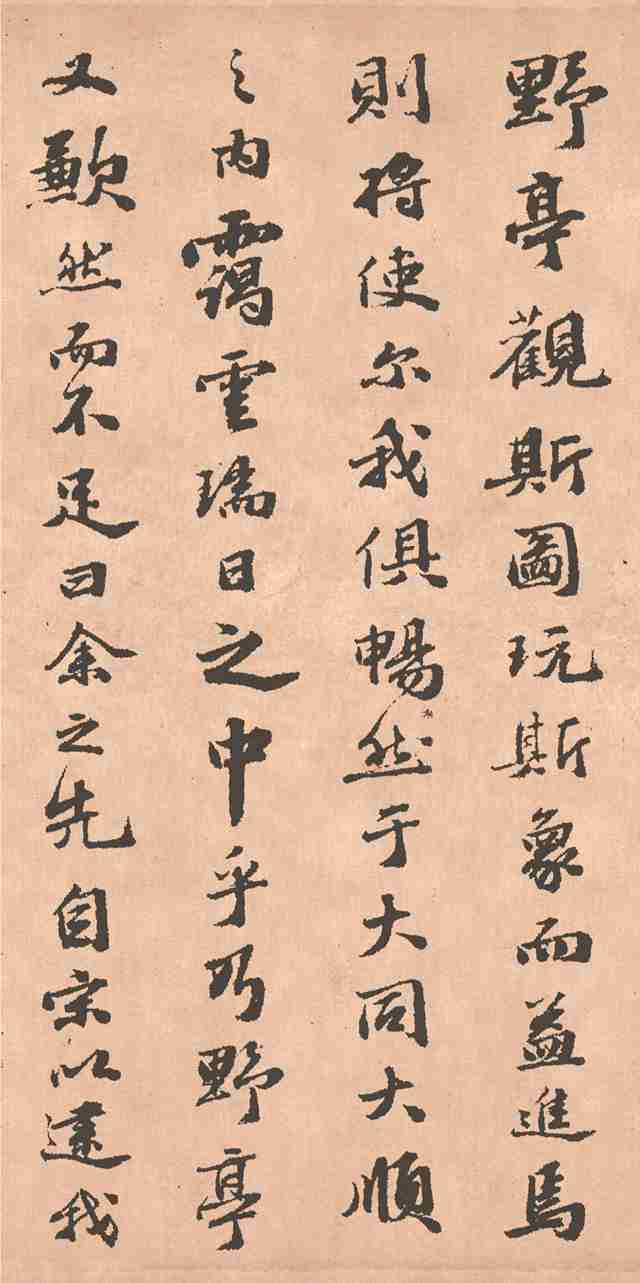 野亭觀斯圖玩斯象而益進焉
則將使尔我俱暢然于大同大順
之内靄雲瑞日之中乎乃野亭
又歉然而不足曰余之先自宋以逮我